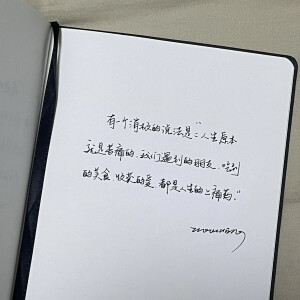 有一个消极的说法是“人生原本
就是苦痛的,我们遇到的朋友、吃到
的美食、收获的爱,都是人生的止痛药。”